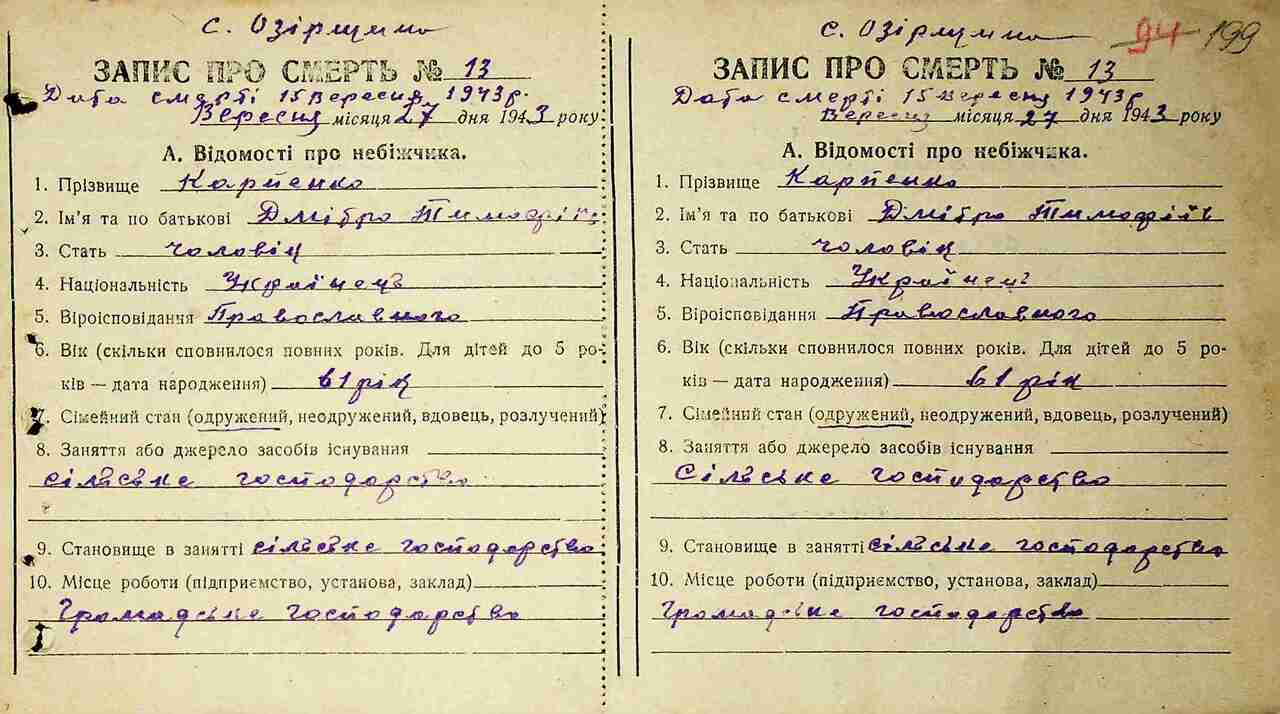 с. Озірщина
ЗАПИС ПРО СМЕРТЬ № 13
Дата смерті 15 Вересня 1943 р.
Вересня місяця 27 дня 1943 року
А. Відомості про небіжчика.
1. Прізвище Карпенко
2. Ім'я та по батькові Дмітро Тимофіїв
3. Стать чоловік
4. Національність Українець
5. Віроісповідання Православного
6. Вік (скільки сповнилося повних років. Для дітей до 5 ро-
ків — дата народження) 61 рік
7. Сімейний стан (одружений, неодружений, вдовець, розлучений)
8. Заняття або джерело засобів існування
сільське господарство
9. Становище в занятті сільське господарство
10. Місце роботи (підприємство, установа, заклад)
Громадське господарство
с. Озірщина 94 199
ЗАПИС ПРО СМЕРТЬ № 13
Дата смерті 15 Вересня 1943 р.
Вересня місяця 27 дня 1943 року
А. Відомості про небіжчика.
1. Прізвище Карпенко
2. Ім'я та по батькові Дмітро Тимофіїв
3. Стать чоловік
4. Національність Українець
5. Віроісповідання Православного
6. Вік (скільки сповнилося повних років. Для дітей до 5 ро-
ків — дата народження) 61 рік
7. Сімейний стан (одружений, неодружений, вдовець, розлучений)
8. Заняття або джерело засобів існування
Сільське господарство
9. Становище в занятті сільське господарство
10. Місце роботи (підприємство, установа, заклад)
Громадське господарство